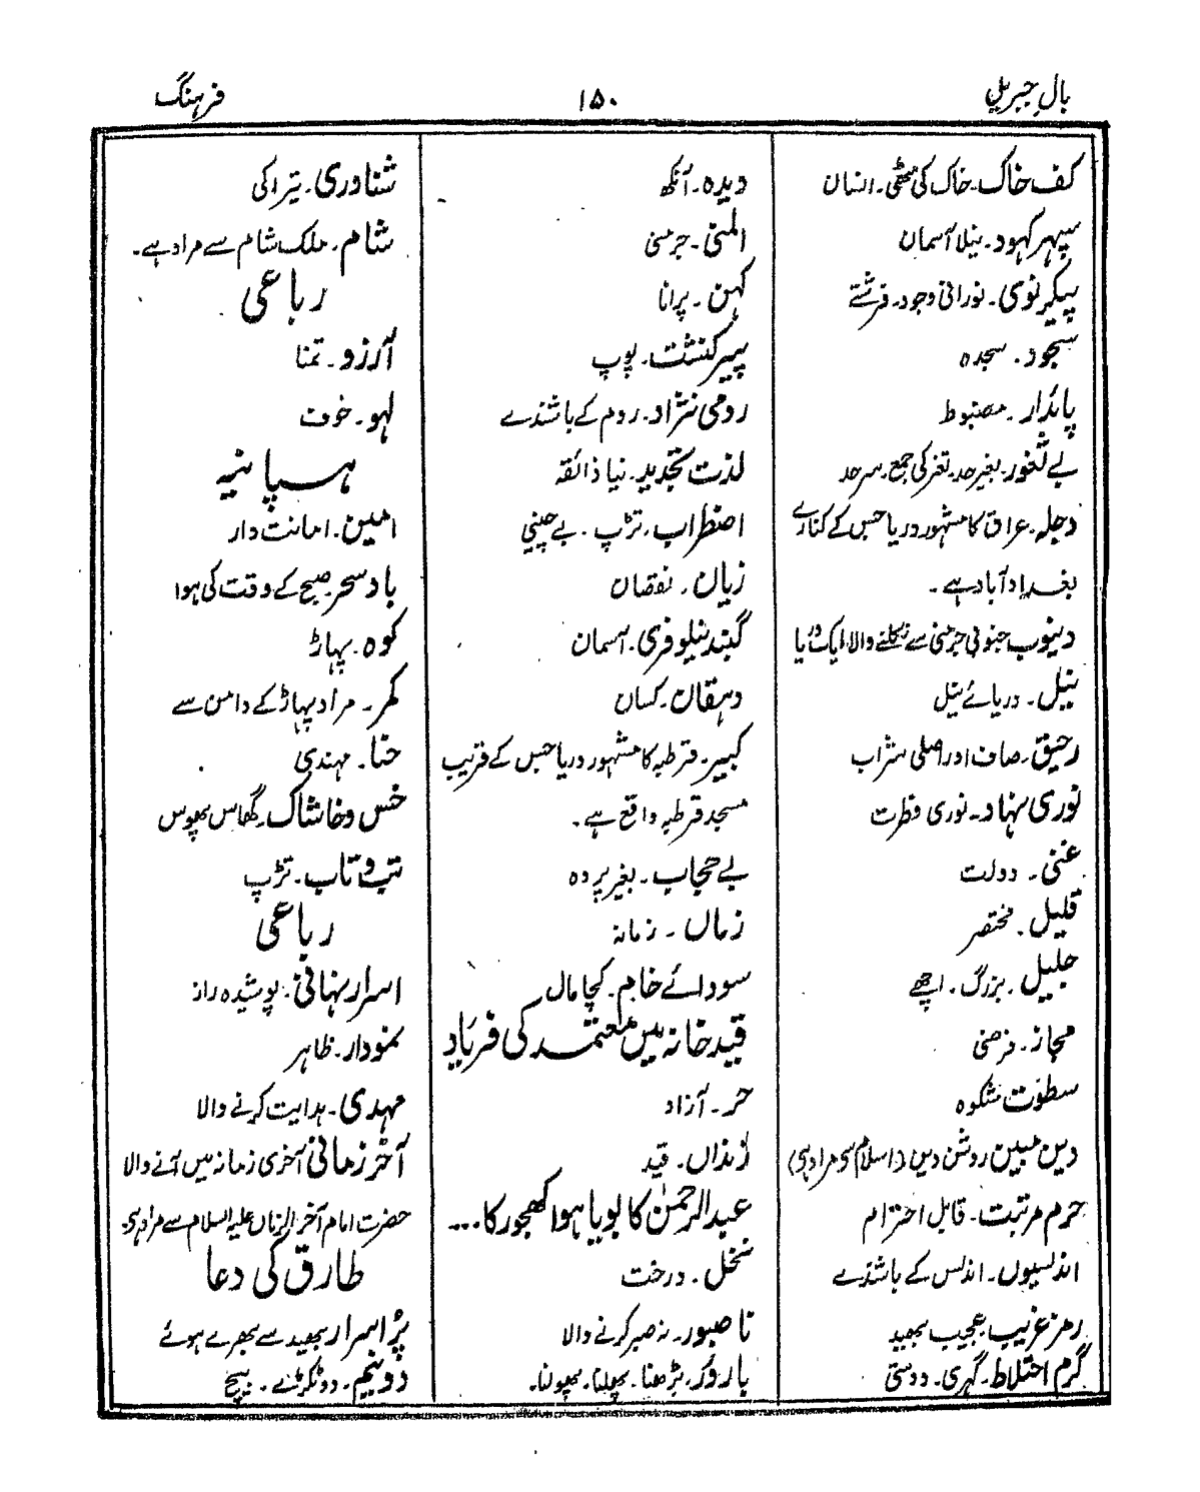 بالِ جبریل
۱۵۰
فرہنگ
کف خاک۔ خاک کی مٹھی۔ انسان
سپہر کبود۔ نیلا آسمان
پیکر نوری۔ نورانی وجود۔ فرشتے
سجود۔ سجدہ
پائدار۔ مضبوط
بے ثغور۔ بغیر حد۔ ثغر کی جمع۔ سرحد
دجلہ۔ عراق کا مشہور دریا جس کے کنارے
بغداد آباد ہے۔
دینوب جنوبی جرمنی سے نکلنے والا ایک دریا
نیل۔ دریائے نیل
رحیق۔ صاف اور اصلی شراب
نوری نہاد۔ نوری فطرت
غنی۔ دولت
قلیل۔ مختصر
جلیل۔ بزرگ۔ اچھے
مجاز۔ فرضی
سطوت شکوہ
دین مبین روشن دین (اسلام سے مراد ہے)
حرم مرتبت۔ قابل احترام
اندلسیوں۔ اندلس کے باشندے
رمز غریب۔ عجیب بھید
گرم اختلاط۔ گہری۔ دوستی
دیدہ۔ آنکھ
المنی۔ جرمنی
کہن۔ پرانا
پیر کنشت۔ پوپ
رومی نژاد۔ روم کے باشندے
لذت تجدید۔ نیا ذائقہ
اضطراب۔ تڑپ۔ بے چینی
زیاں۔ نقصان
گنبد نیلوفری۔ آسمان
دہقان۔ کسان
کبیر۔ قرطبہ کا مشہور دریا جس کے قریب
مسجد قرطبہ واقع ہے۔
بے حجاب۔ بغیر پردہ
زماں۔ زمانہ
سودائے خام۔ کچا مال
قید خانہ میں معتمد کی فریاد
حر۔ آزاد
زنداں۔ قید
عبدالرحمٰن کا بویا ہوا کھجور کا....
نخل۔ درخت
ناصبور۔ نہ صبر کرنے والا
بارور۔ بڑھنا۔ پھلنا۔ پھولنا۔
شناوری۔ تیراکی
شام۔ ملک شام سے مراد ہے۔
رباعی
آرزو۔ تمنا
لہو۔ خون
ہسپانیہ
امین۔ امانت دار
باد سحر صبح کے وقت کی ہوا
کوہ۔ پہاڑ
کمر۔ مراد پہاڑ کے دامن سے
حنا۔ مہندی
خس و خاشاک۔ گھاس پھوس
تب و تاب۔ تڑپ
رباعی
اسرار نہانی۔ پوشیدہ راز
نمودار۔ ظاہر
مہدی۔ ہدایت کرنے والا
آخر زمانی آخری زمانہ میں آنے والا
حضرت امام آخر الزماں علیہ السلام سے مراد ہے
طارق کی دعا
پُر اسرار بھید سے بھرے ہوئے
دو نیم۔ دو ٹکڑے۔ بیچ